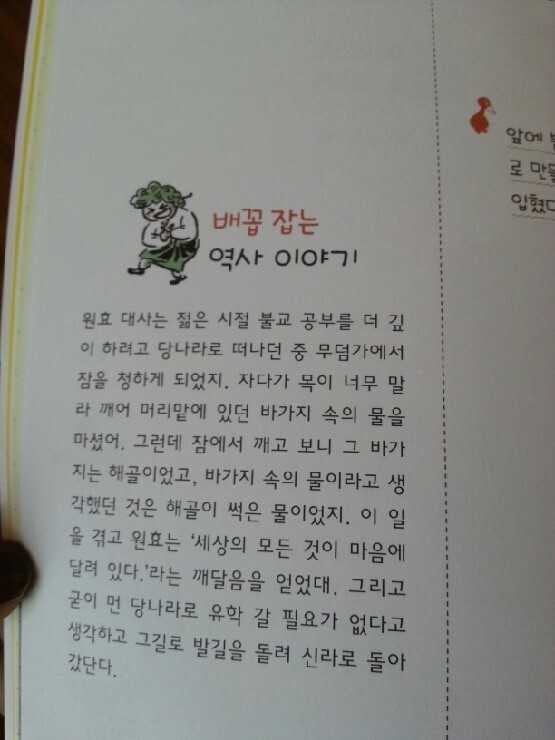 배꼽 잡는
역사 이야기
원효 대사는 젊은 시절 불교 공부를 더 깊
이 하려고 당나라로 떠나던 중 무덤가에서
잠을 청하게 되었지. 자다가 목이 너무 말
라 깨어 머리맡에 있던 바가지 속의 물을
마셨어. 그런데 잠에서 깨고 보니 그 바가
지는 해골이었고, 바가지 속의 물이라고 생
각했던 것은 해골이 썩은 물이었지. 이 일
을 겪고 원효는 ‘세상의 모든 것이 마음에
달려 있다.’라는 깨달음을 얻었대. 그리고
굳이 먼 당나라로 유학 갈 필요가 없다고
생각하고 그길로 발길을 돌려 신라로 돌아
갔단다.
앞에
로 만들
입혔다